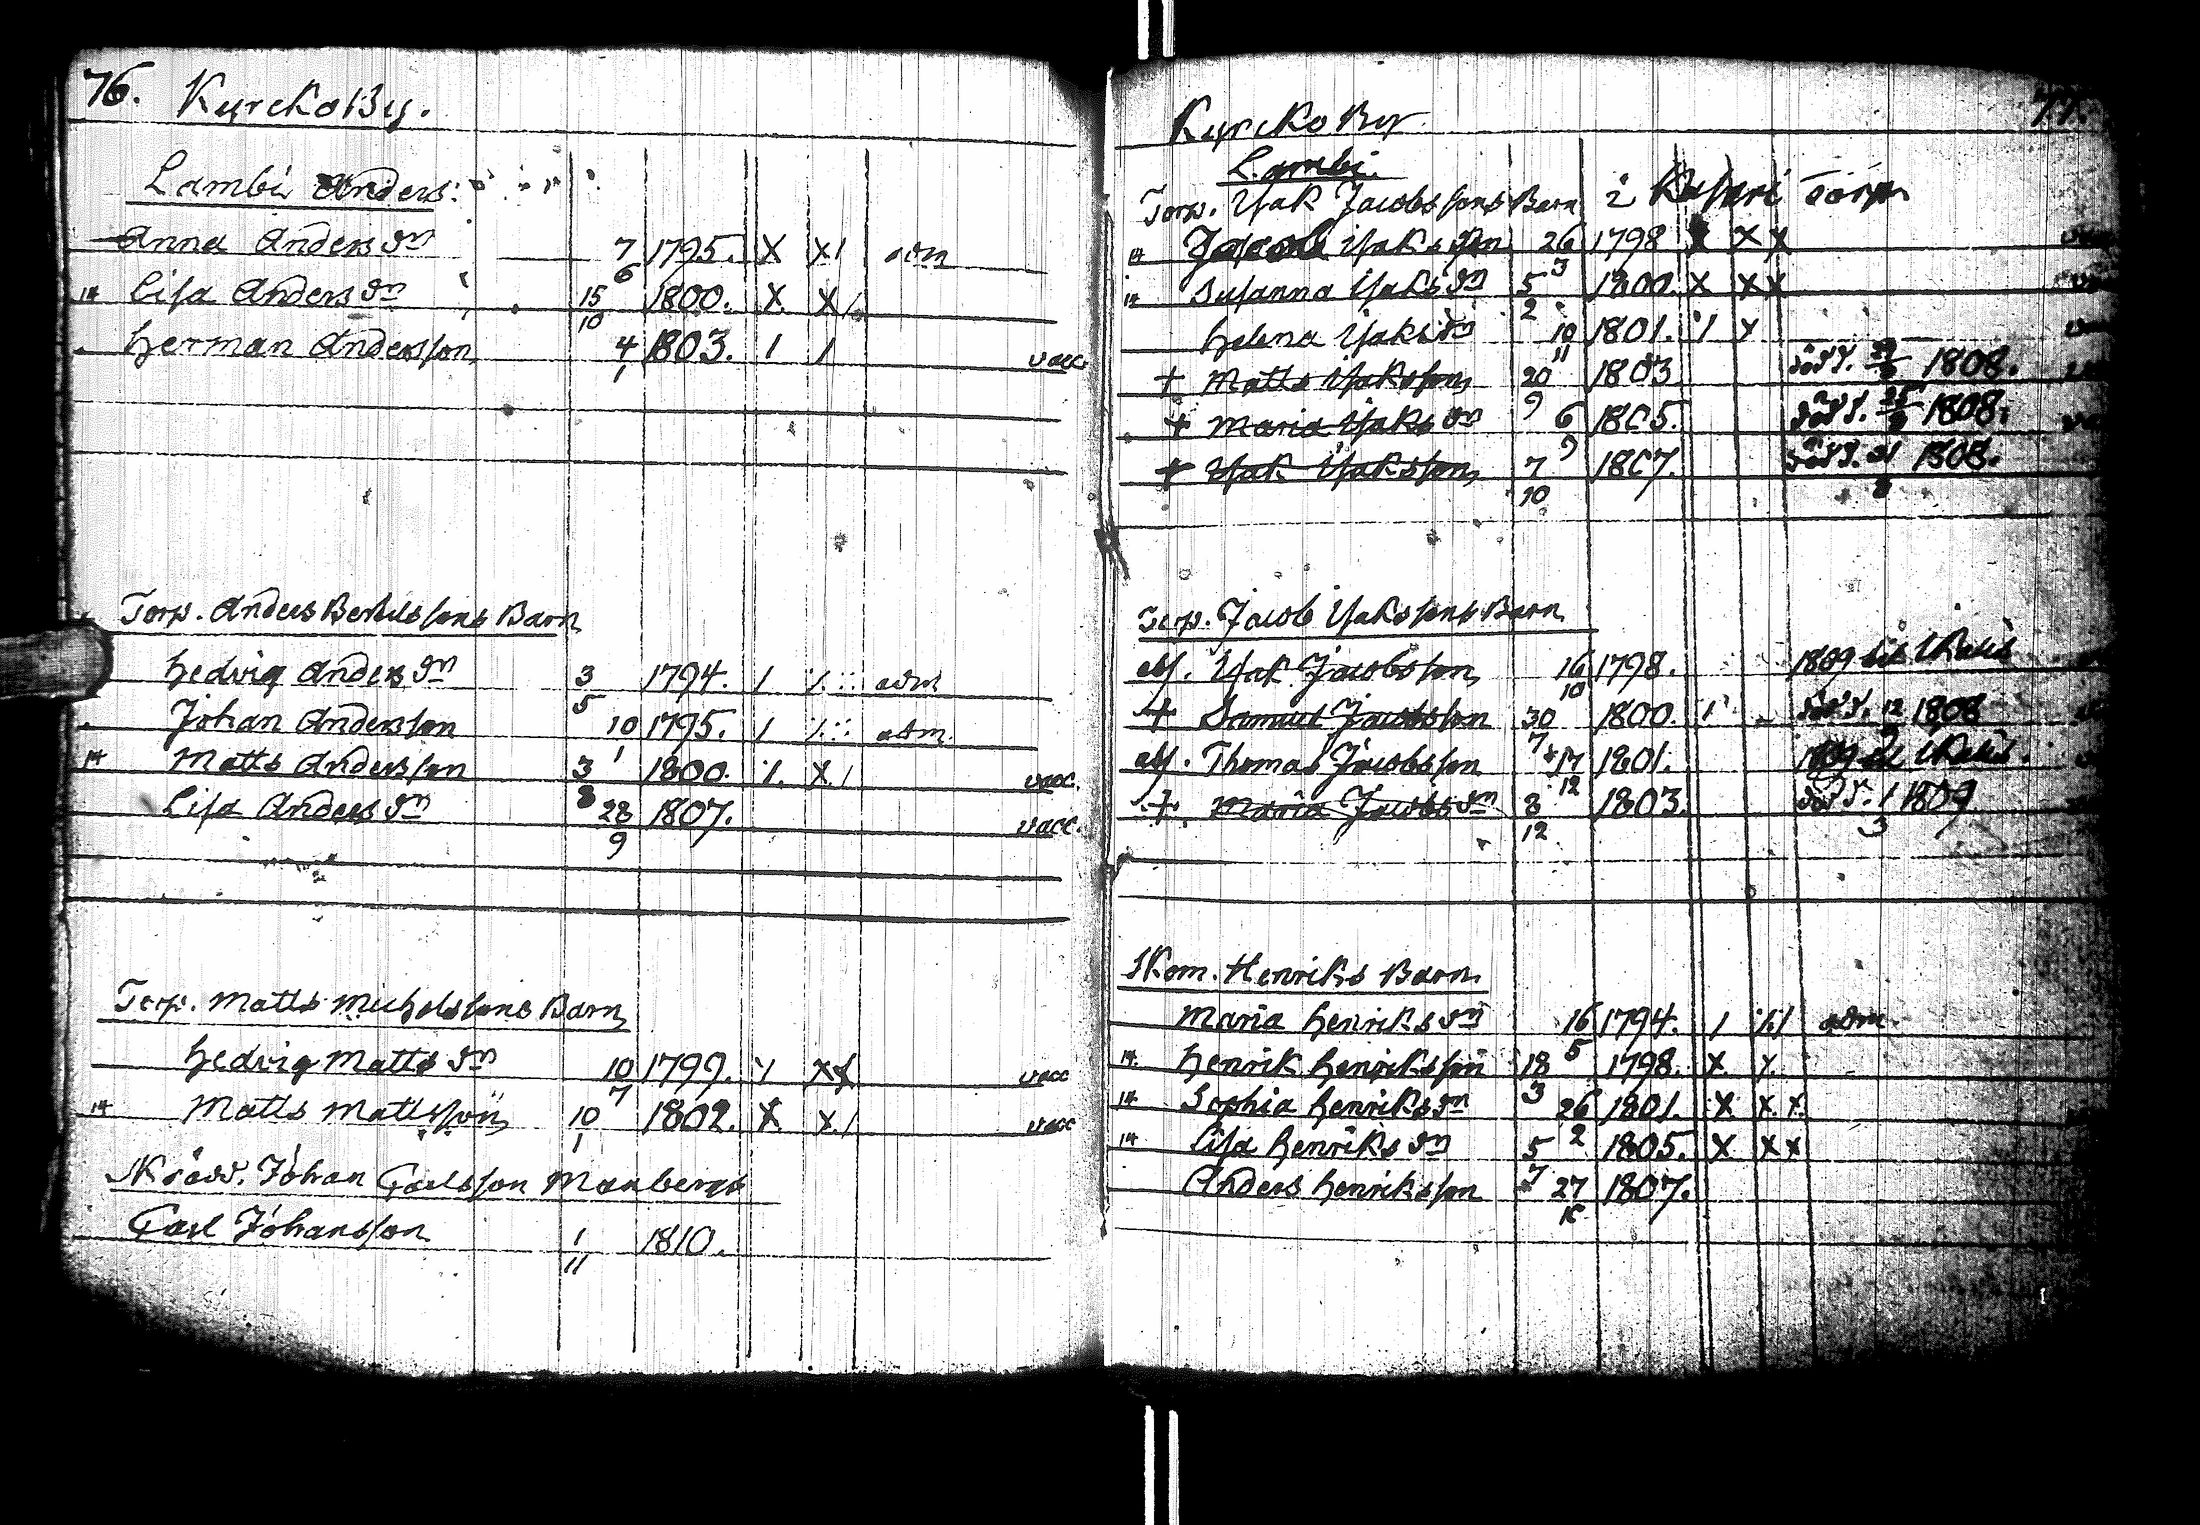 76. Kyrcko By.
Lambi Anders:
Anna Andersdn 7/6 1795. X X1 adm
14 Lisa Andersdn 15/10 1800. X X/
Herman Andersson 4/1 1803. 1 1 vacc
Torp. Anders Bertilssons Barn
Hedvig Andersdn 3/5 1794. 1 1 adm
Johan Andersson 10/1 1795. 1 1 adm.
14 Matts Andersson 3/8 1800. 1. X/ vacc.
Lisa Andersdn 28/9 1807. vacc.
Torp. Matts Michelssons Barn
Hedvig Mattsdn 10/7 1799. Y XX vacc
14 Matts Mattsson 10/1 1802. X X/ vacc
Skrädd. Johan Carlsson Manbergs
Carl Johansson 1/11 1810.
77.
Kyrcko By
Lambi.
Torp. Isak Jacobssons Barn i torp
14 Jacob Isaksson 26/3 1798 X X X
14 Susanna Isaksdn 5/2 1800. X XX
Helena Isaksdn 10/11 1801. 1 Y
+ Matts Isaksson 20/9 1803 död d. 1808.
+ Maria Isaksdn 6/9 1805. död d. 1808.
+ Isak Isaksson 7/10 1807. död d. 1808.
Torp. Jacob Isakssons Barn
afl. Isak Jacobsson 16/10 1798. 1809 till
+ Samuel Jacobsson 30/7 1800. 1 död d. 12 1808
afl. Thomas Jacobsson 17/12 1801. 1809
+ Maria Jacobsdn 8/12 1803. död d. 1/3 1809
Skom. Henriks Barn
Maria Henriksdn 16/5 1794. 1 1/1 adm.
14 Henrik Henriksson 18/3 1798. X. Y.
14 Sophia Henriksdn 26/2 1801. X X X
14 Lisa Henriksdn 5/7 1805. X XX
Anders Henriksson 27 1807.